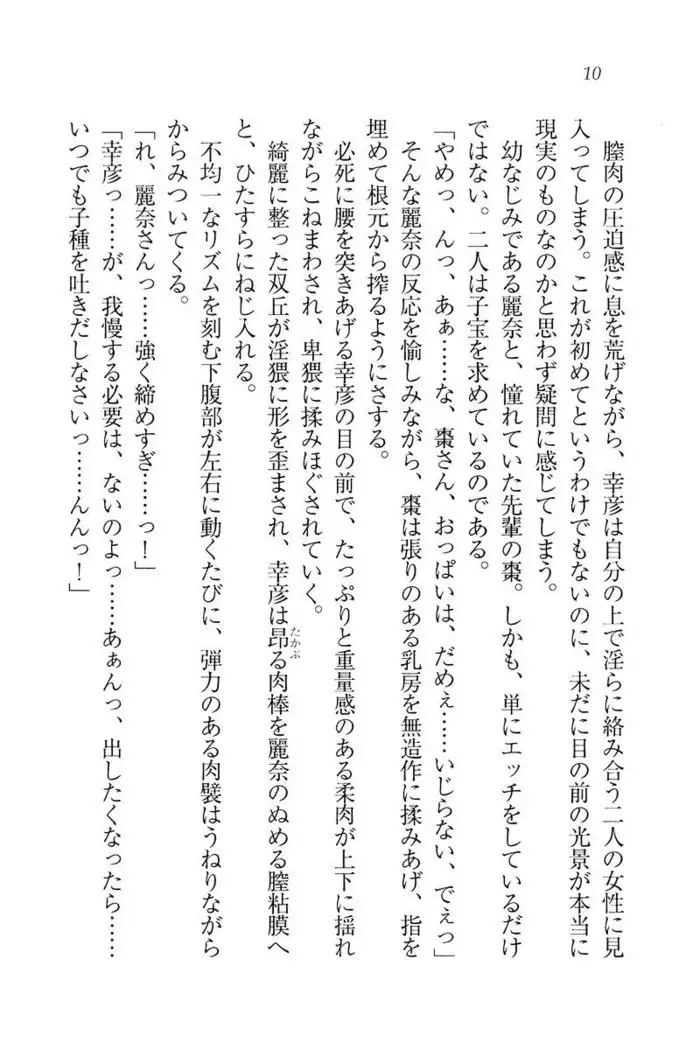 10
膣肉の圧迫感に息を荒げながら、幸彦は自分の上で淫らに絡み合う二人の女性に見
入ってしまう。これが初めてというわけでもないのに、未だに目の前の光景が本当に
現実のものなのかと思わず疑問に感じてしまう。
幼なじみである麗奈と、憧れていた先輩の棗。しかも、単にエッチをしているだけ
ではない。二人は子宝を求めているのである。
「やめっ、んっ、あぁ……な、棗さん、おっぱいは、だめぇ……いじらない、でぇっ」
そんな麗奈の反応を愉しみながら、棗は張りのある乳房を無造作に揉みあげ、指を
埋めて根元から搾るようにさする。
必死に腰を突きあげる幸彦の目の前で、たっぷりと重量感のある柔肉が上下に揺れ
ながらこねまわされ、卑猥に揉みほぐされていく。
綺麗に整った双丘が淫猥に形を歪まされ、幸彦は昂る肉棒を麗奈のぬめる膣粘膜へ
たかぶ
と、ひたすらにねじ入れる。
不均一なリズムを刻む下腹部が左右に動くたびに、弾力のある肉襞はうねりながら
からみついてくる。
「れ、麗奈さんっ……強く締めすぎ……っ！」
「幸彦っ……が、我慢する必要は、ないのよっ……あぁんっ、出したくなったら……
いつでも子種を吐きだしなさいっ……んんっ！」